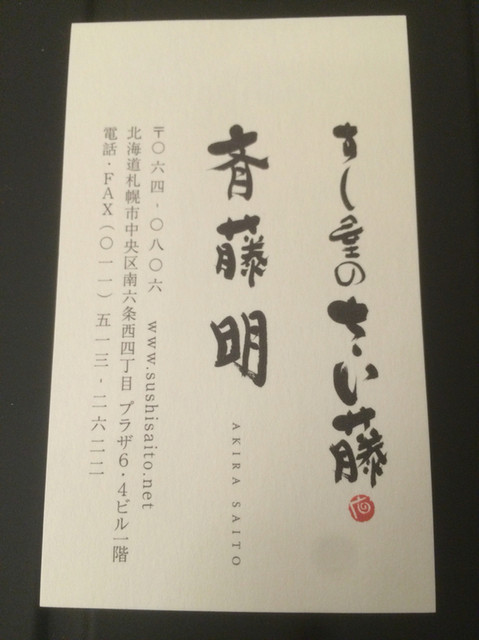 すし屋のさい藤
斉藤 明 AKIRA SAITO
〒〇六四-〇八〇六 www.sushisaito.net
北海道札幌市中央区南六条西四丁目 プラザ6・4ビル一階
電話・FAX(〇一一)五一三-二六二二